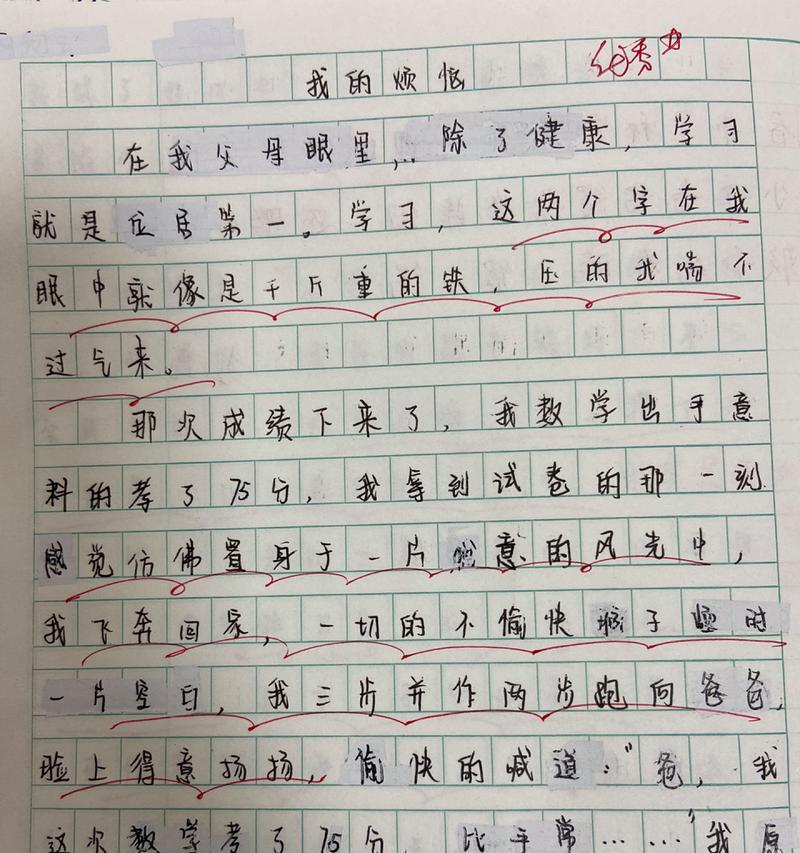 优秀
我的烦恼
在我父母眼里,除了健康,学习
就是位居第一。学习,这两个字在我
眼中就像是千斤重的铁,压的我喘不
过气来。
那次成绩下来了,我数学出乎意
料的考了75分,我拿到试卷的那一刻
感觉仿佛置身于一片惬意的风光中,
我飞奔回家,一切的不愉快 子 时
一片空白,我三步并作两步跑向爸爸,
脸上得意扬扬,愉快的喊道:“爸,我
这次数学考了75分,比平常……”我原